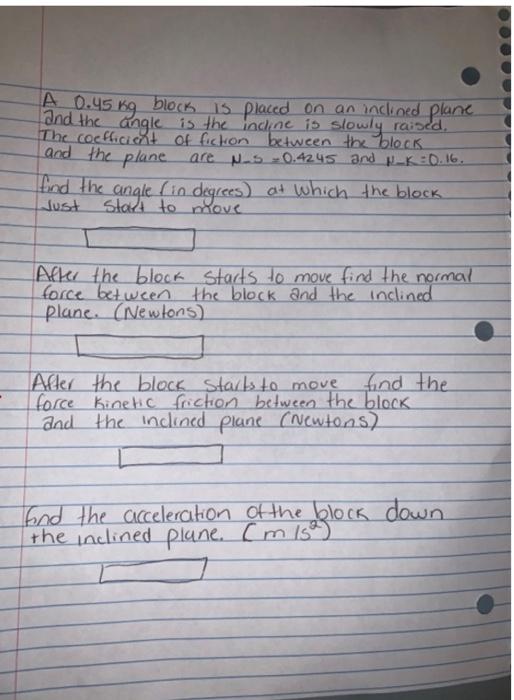 A 0.45 kg block is placed on an inclined plane
and the angle is the incline is slowly raised.
The coefficient of fiction between the block
and the plane are μ_s = 0.4245 and μ_k = 0.16.
find the angle (in degrees) at which the block
Just Start to move
After the block starts to move find the normal
force between the block and the inclined
plane. (Newtons)
After the block starts to move find the
force kinetic friction between the block
and the inclined plane (Newtons)
find the acceleration of the block down
the inclined plane. (m/s²)